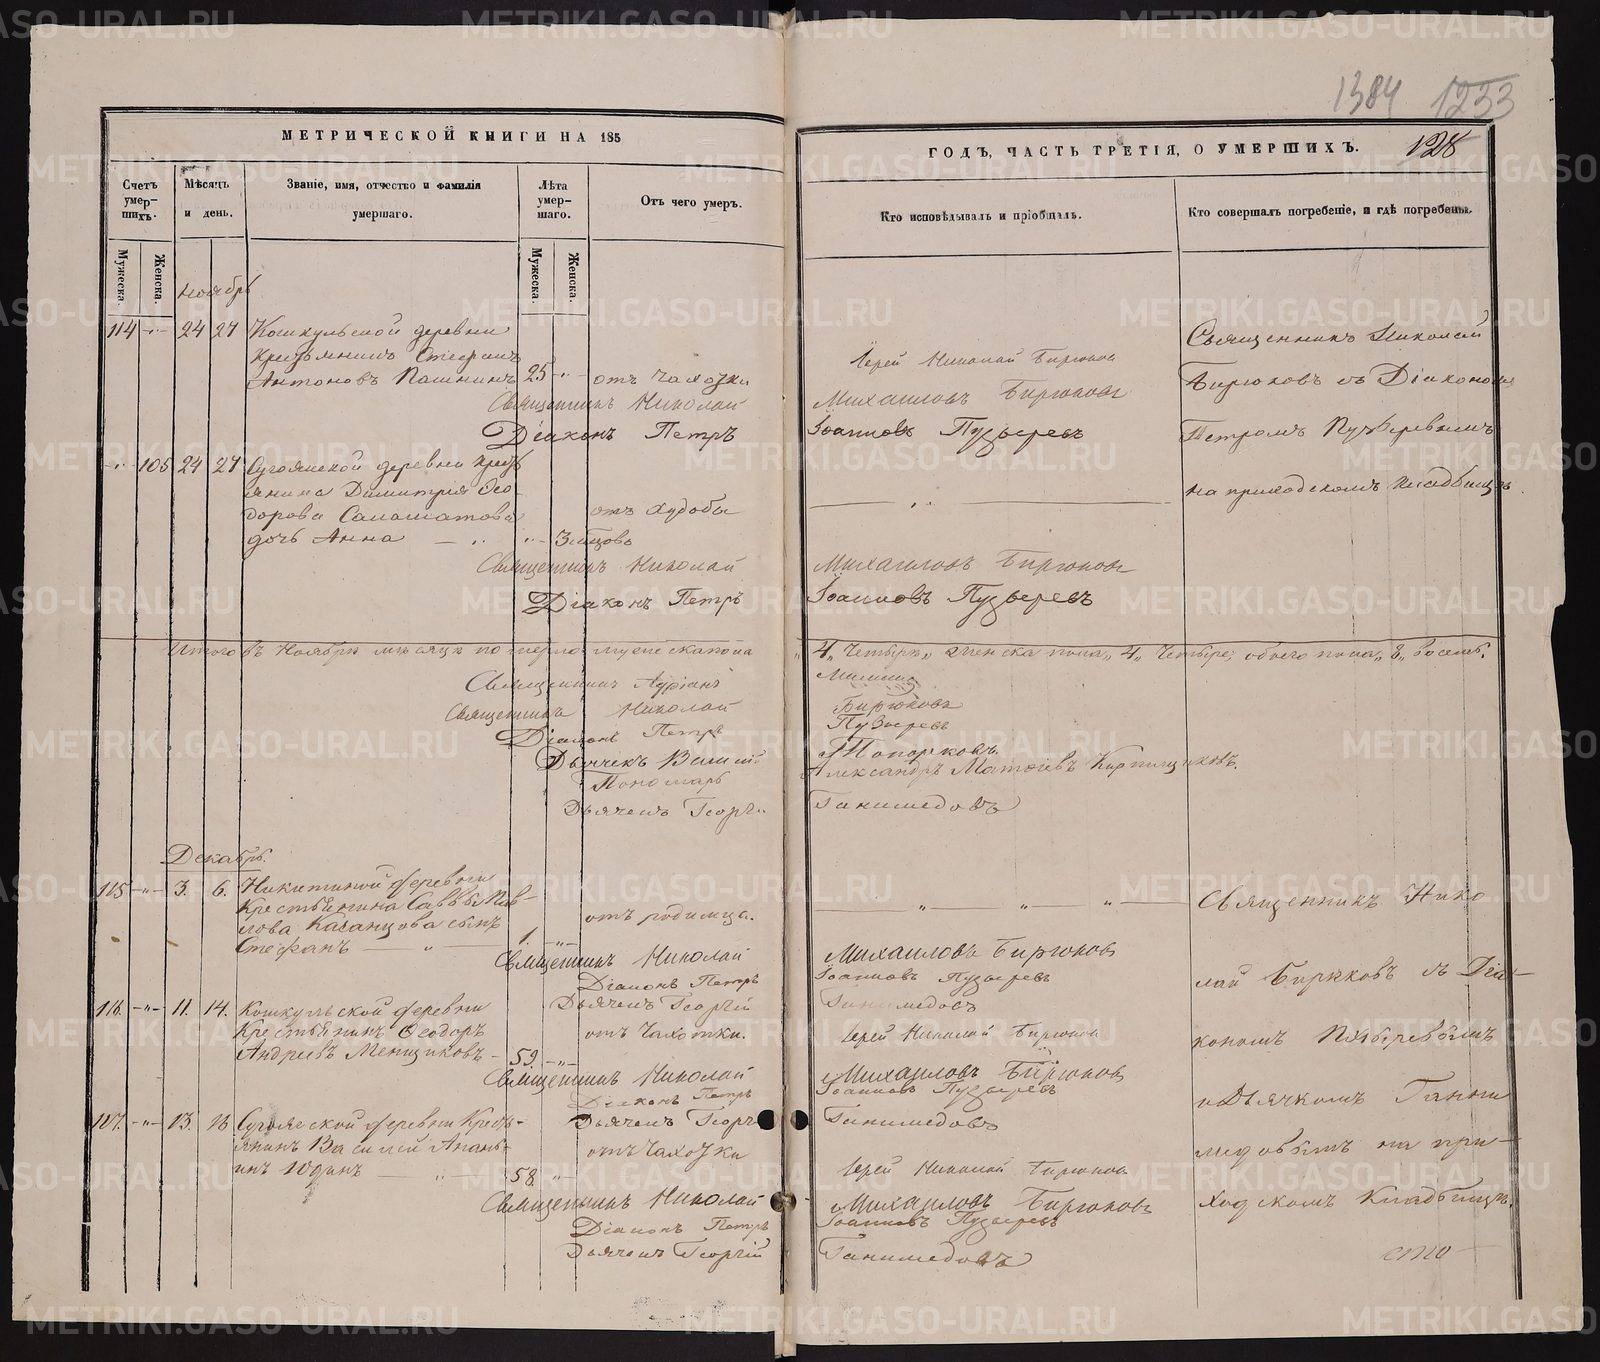 1384 1233
МЕТРИЧЕСКОЙ КНИГИ НА 185
ГОДЪ, ЧАСТЬ ТРЕТІЯ, О УМЕРШИХЪ.
128
Счетъ умер-шихъ.
Мѣсяцъ и день.
Званіе, имя, отчество и фамилія умершаго.
Лѣта умер-шаго.
Отъ чего умеръ.
Кто исповѣдывалъ и пріобщалъ.
Кто совершалъ погребеніе, и гдѣ погребены.
Мужеска.
Женска.
Мужеска.
Женска.
Ноябрь
114 24 27 Кошкульской деревни
крестьянинъ Стефанъ
Антоновъ Пашнинъ 25 отъ чахотки
Іерей Николай Бирюковъ
Священникъ Николай Михаиловъ Бирюковъ
Діаконъ Петръ Іоанновъ Пузыревъ
Священникъ Николай
Бирюковъ съ Діакономъ
Петромъ Пузыревымъ
на приходскомъ кладбищѣ
105 24 27 Сугоякской деревни крест
янина Димитрія Ѳео
дорова отъ худобы
дочь Анна 3 мѣсяцовъ
Священникъ Николай Михаиловъ Бирюковъ
Діаконъ Петръ Іоанновъ Пузыревъ
Итого въ Ноябрѣ мѣсяцѣ померло мужеска пола 4, четыре, женска пола, 4, четыре; обоего пола, 8, восемь.
Священникъ Адріанъ
Священникъ Николай Бирюковъ
Діаконъ Петръ Пузыревъ
Дьячекъ Василій Топорковъ.
Пономарь Александръ Матѳіевъ Кирпищиковъ.
Дьячекъ Георгій Ганимедовъ
Декабрь.
115 3. 6. Никитиной деревни
Крестьянина Саввы Пав-
лова Казанцова сынъ отъ родимца.
Стефанъ 1.
Священникъ Николай Михаиловъ Бирюковъ
Діаконъ Петръ Іоанновъ Пузыревъ
Дьячекъ Георгій Ганимедовъ
Священникъ Нико
лай Бирюковъ съ Діа-
кономъ Пузыревымъ
и Дьячкомъ Гани
медовымъ на при-
ходскомъ кладбищѣ.
116. 11. 14. Кошкульской деревни
Крестьянинъ Ѳеодоръ отъ чахотки.
Андреевъ Менщиковъ 59.
Іерей Николай Бирюковъ
Священникъ Николай Михаиловъ Бирюковъ
Діаконъ Петръ Іоанновъ Пузыревъ
Дьячекъ Георгій Ганимедовъ
107. 13. Сугоякской деревни Крест-
янинъ Василій Анань-
инъ Юдинъ 58 отъ чахотки
Іерей Николай Бирюковъ
Священникъ Николай Михаиловъ Бирюковъ
Діаконъ Петръ Іоанновъ Пузыревъ
Дьячекъ Георгій Ганимедовъ
сто
METRIKI.GASO-URAL.RU